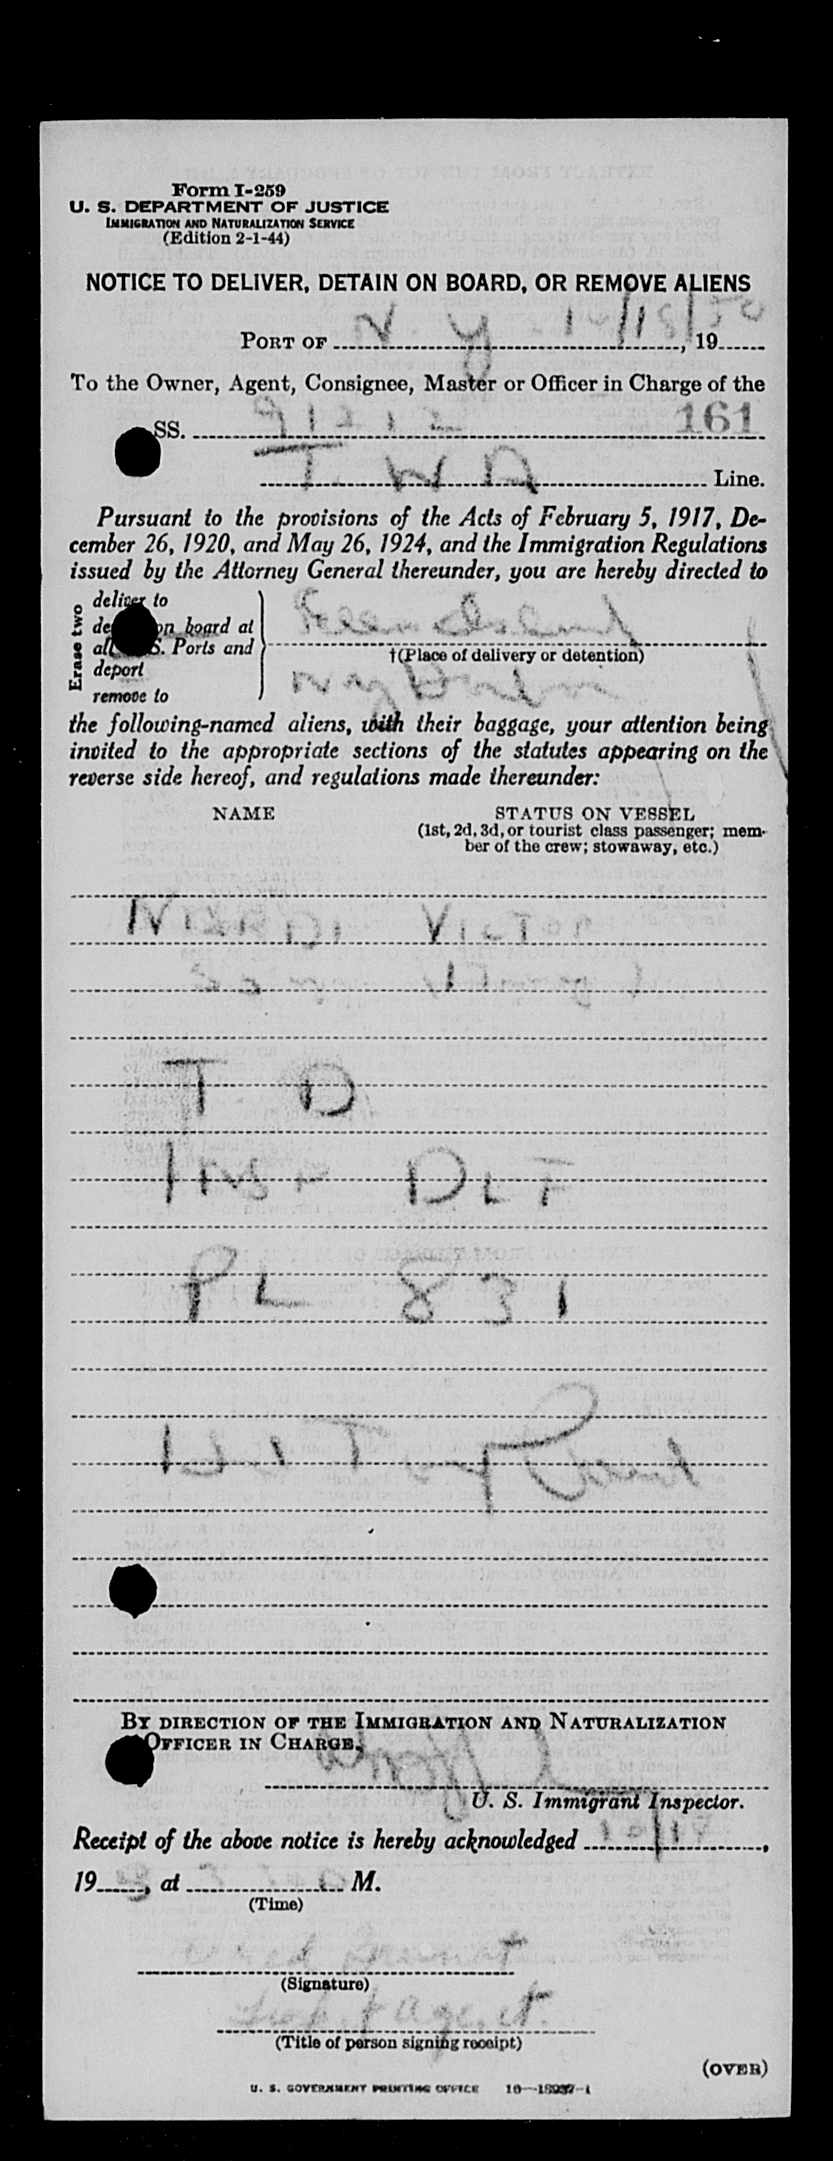 Form I-259
U. S. DEPARTMENT OF JUSTICE
IMMIGRATION AND NATURALIZATION SERVICE
(Edition 2-1-44)
NOTICE TO DELIVER, DETAIN ON BOARD, OR REMOVE ALIENS
PORT OF N. Y. 10/18/50, 19
To the Owner, Agent, Consignee, Master or Officer in Charge of the
SS. 91212 161
T. W A Line.
Pursuant to the provisions of the Acts of February 5, 1917, De-
cember 26, 1920, and May 26, 1924, and the Immigration Regulations
issued by the Attorney General thereunder, you are hereby directed to
Erase two
deliver to
de on board at
al S. Ports and
deport
remove to
Island
†(Place of delivery or detention)
the following-named aliens, with their baggage, your attention being
invited to the appropriate sections of the statutes appearing on the
reverse side hereof, and regulations made thereunder:
NAME STATUS ON VESSEL
(1st, 2d, 3d, or tourist class passenger; mem-
ber of the crew; stowaway, etc.)
VICTOR
T D
DLT
PL 831
BY DIRECTION OF THE IMMIGRATION AND NATURALIZATION
OFFICER IN CHARGE,
U. S. Immigrant Inspector.
Receipt of the above notice is hereby acknowledged 10/18,
19, at M.
(Time)
(Signature)
Agent.
(Title of person signing receipt)
(OVER)
U. S. GOVERNMENT PRINTING OFFICE 16—18937-1